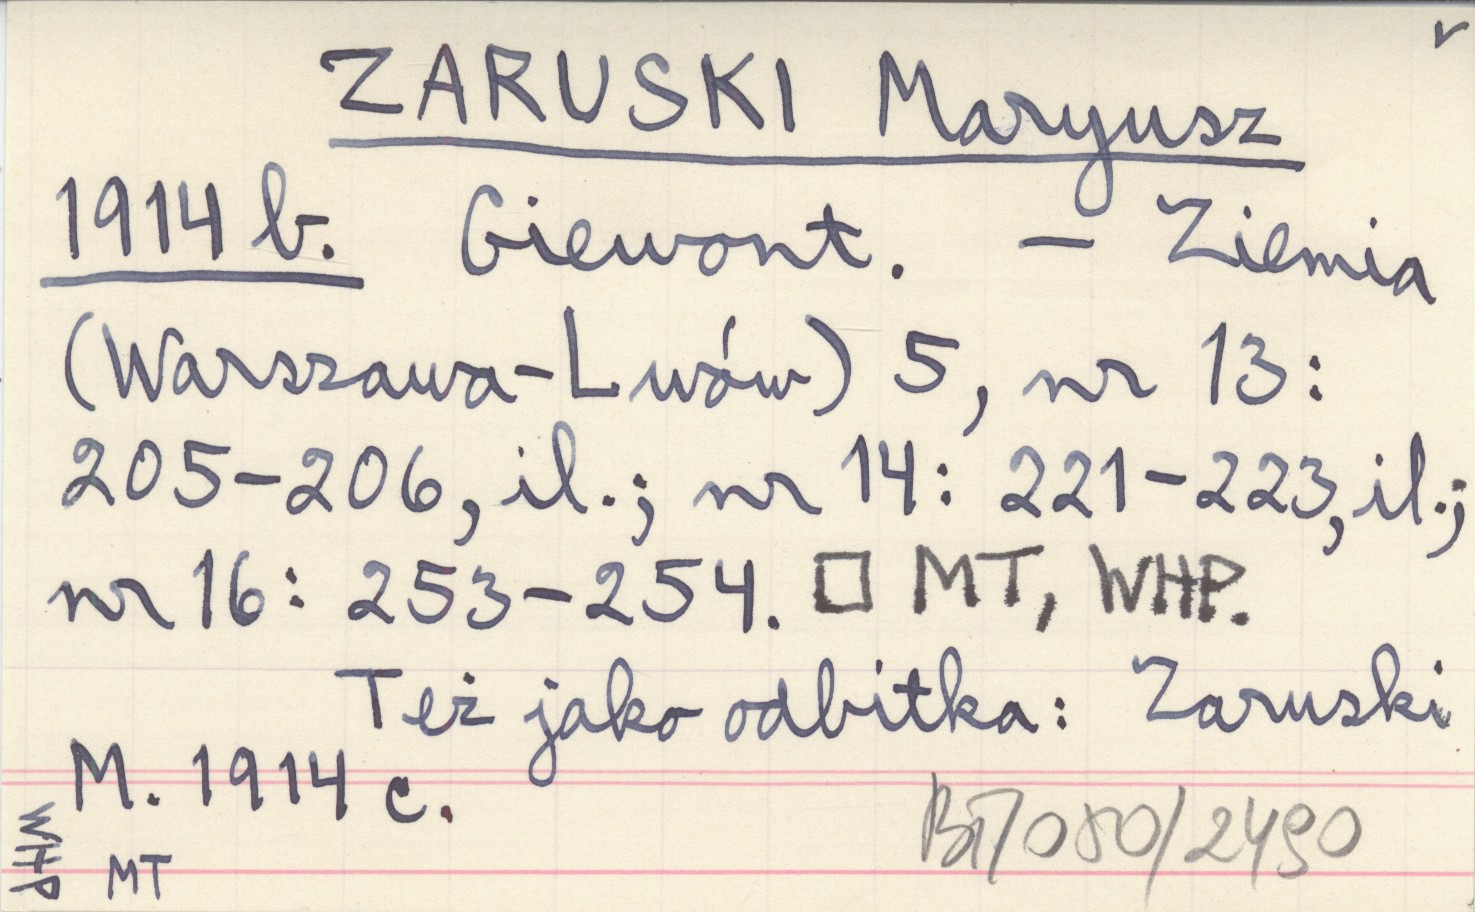 v
ZARUSKI Maryusz
1914 b. Giewont. – Ziemia
(Warszawa-Lwów) 5, nr 13:
205–206, il.; nr 14: 221–223, il.;
nr 16: 253–254. □ MT, WHP.
Też jako odbitka: Zaruski
M. 1914 c.
BT/080/2490
WHP
MT